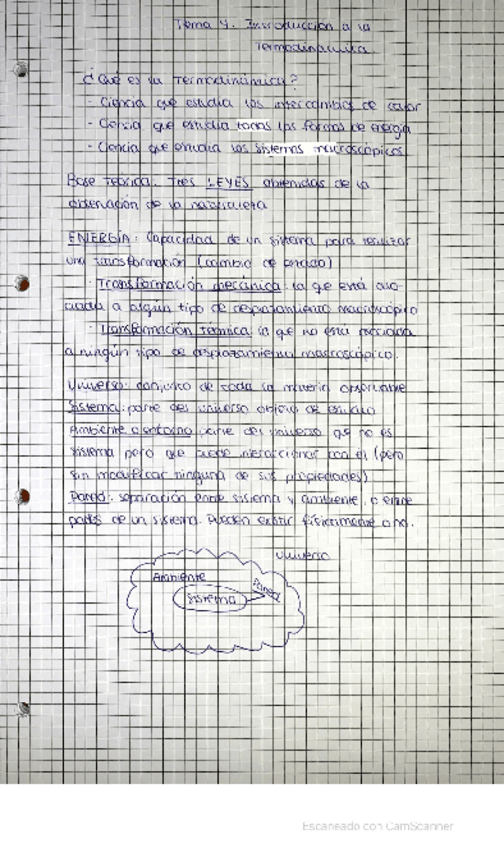 Tema 4. Introducción a la
Termodinámica
¿Qué es la Termodinámica?
- Ciencia que estudia los intercambios de calor
- Ciencia que estudia todas las formas de energía
- Ciencia que estudia los sistemas macroscópicos
Base teórica: Tres LEYES obtenidas de la
observación de la naturaleza
ENERGÍA: Capacidad de un sistema para realizar
una transformación (cambio de estado)
· Transformación mecánica: la que está aso-
ciada a algún tipo de desplazamiento macroscópico
· Transformación térmica: la que no está asociada
a ningún tipo de desplazamiento macroscópico.
Universo: conjunto de toda la materia observable
Sistema: parte del universo objeto de estudio
Ambiente o entorno: parte del universo que no es
sistema pero que puede interaccionar con él (pero
sin modificar ninguna de sus propiedades)
Pared: separación entre sistema y ambiente, o entre
partes de un sistema. Pueden existir físicamente o no.
Universo
Ambiente
Pared
Sistema
Escaneado con CamScanner